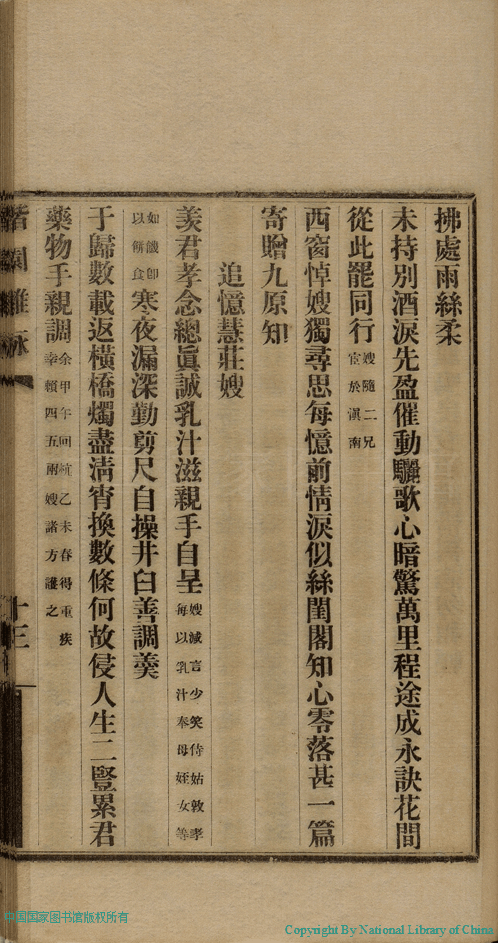 拂處雨絲柔
未持別酒淚先盈催動驪歌心暗驚萬里程途成永訣花間
從此罷同行嫂隨二兄宦於滇南
西窗悼嫂獨尋思每憶前情淚似絲閨閣知心零落甚一篇
寄贈九原知
追憶慧莊嫂
羨君孝念總眞誠乳汁滋親手自呈嫂減言少笑侍姑敦孝每以乳汁奉母姪女等
如饑卽以餅食寒夜漏深勤剪尺自操井臼善調羹
于歸數載返橫橋燭盡淸宵換數條何故侵人生二豎累君
藥物手親調余甲午回杭乙未春得重疾幸賴四五兩嫂諸方護之
十三
中国国家图书馆版权所有
Copyright By National Library of China